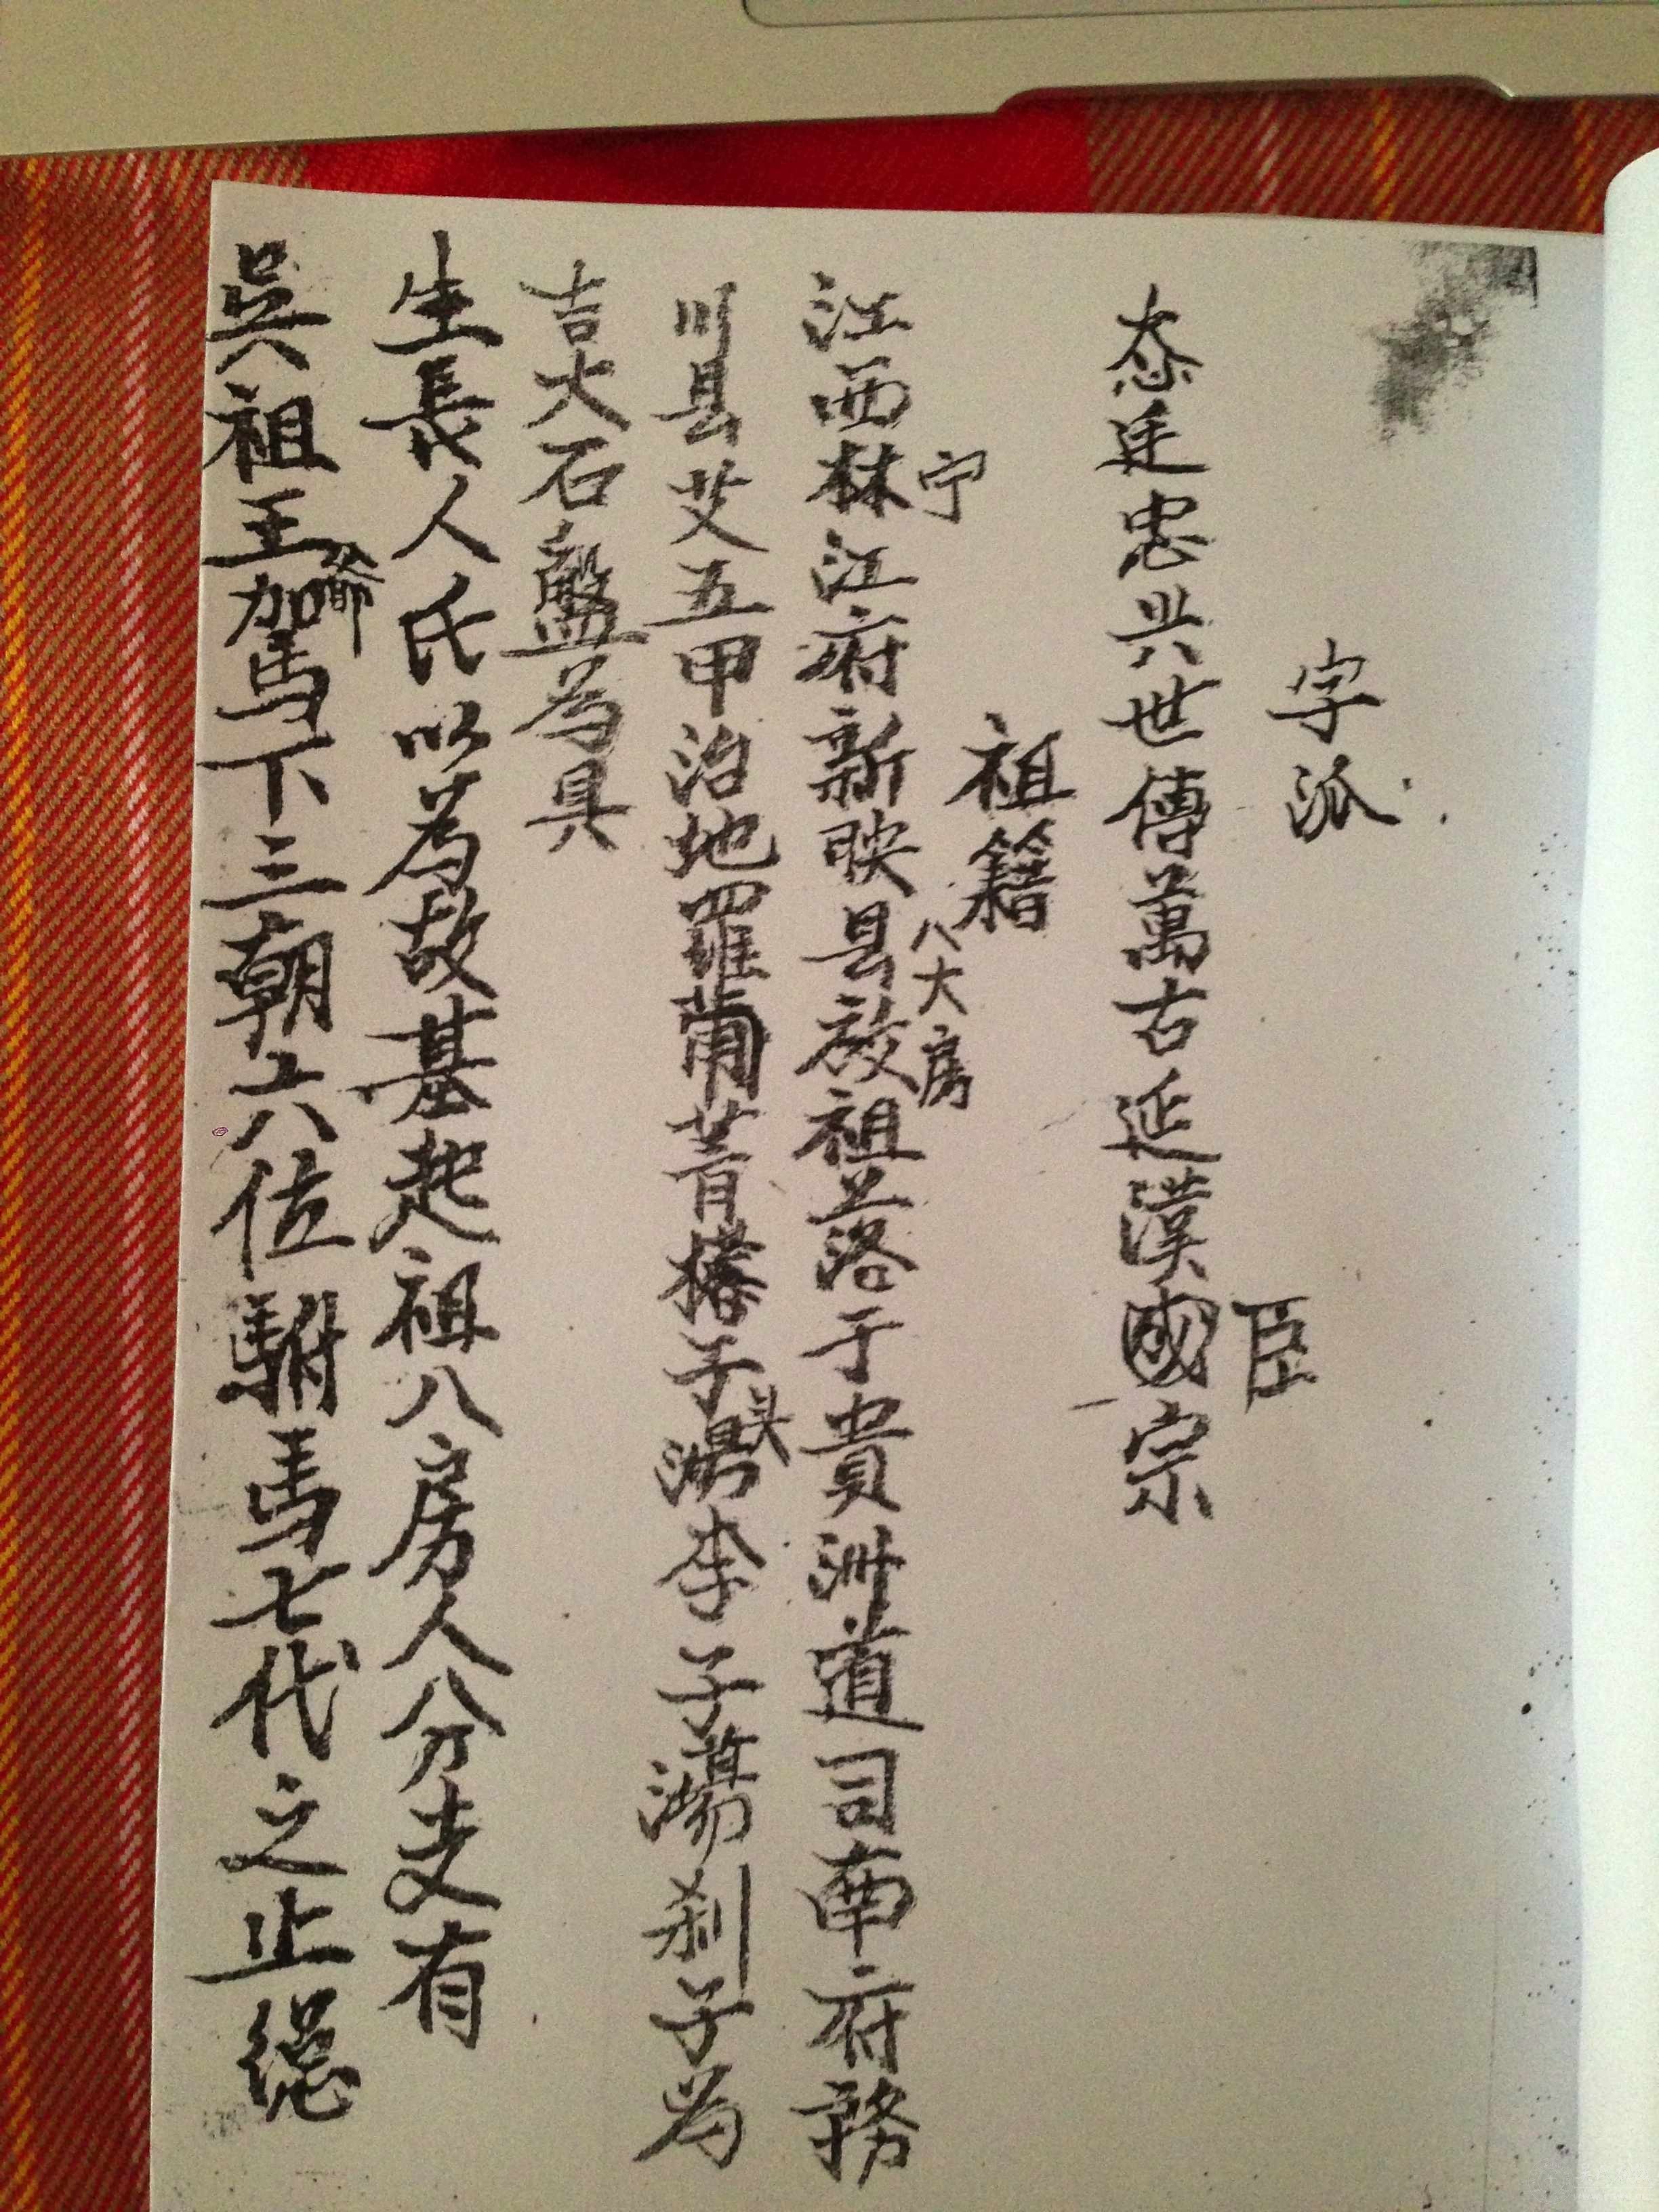 字派
忝廷忠兴世傳萬古延漢國宗
臣
祖籍
宁
八大房
江西林江府新映县叙祖並落于貴洲道司南府務
川县艾五甲治地羅葡菁椿子湯李子湯刹子为
头
吉大石盤為具
生長人氏以為故基起祖八房人分支有
爺
吳祖王駕下三朝六位駙馬七代之止總